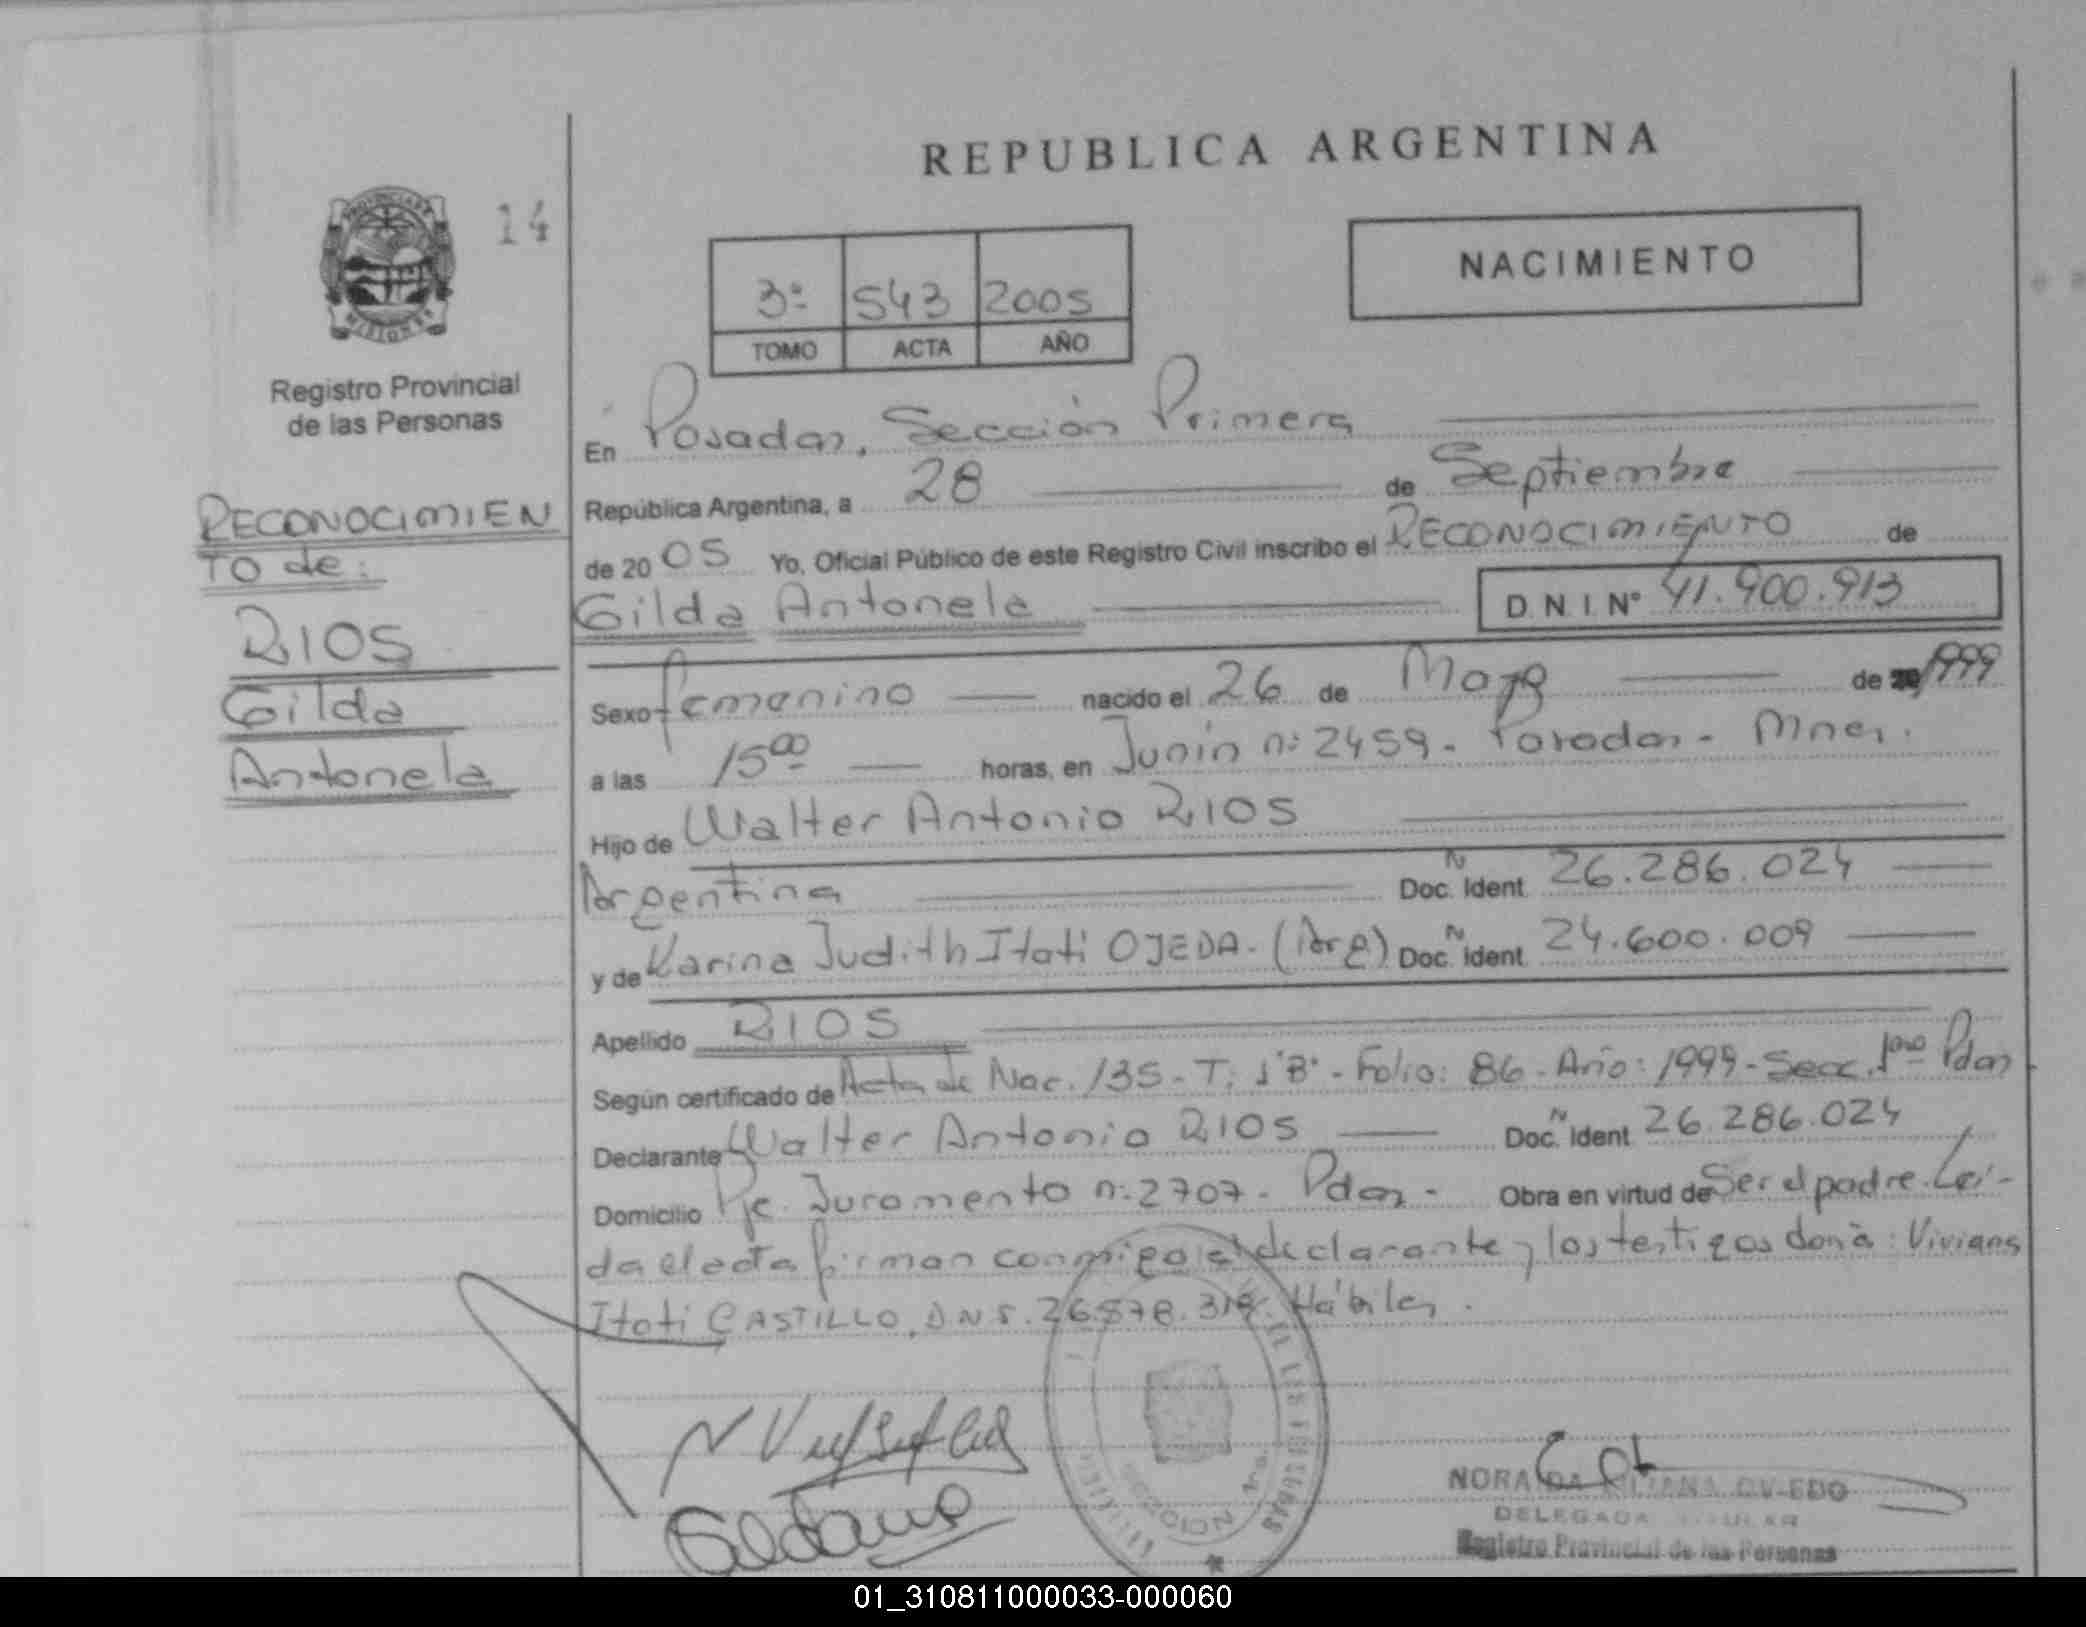 REPUBLICA ARGENTINA
PROVINCIA DE
MISIONES
14
NACIMIENTO
3º 543 2005
TOMO ACTA AÑO
Registro Provincial
de las Personas
RECONOCIMIEN
TO de:
RIOS
Gilda
Antonela
En Posadas, Sección Primera
República Argentina, a 28 de Septiembre
de 2005 Yo, Oficial Público de este Registro Civil inscribo el RECONOCIMIENTO de
Gilda Antonela D.N.I. Nº 41.900.913
Sexo femenino nacido el 26 de Mayo de 1999
a las 15⁰⁰ horas, en Junín nº 2459 - Posadas - Mnes.
Hijo de Walter Antonio RIOS
Argentina Doc. Ident. 26.286.024
y de Karina Judith Itati OJEDA. (Arg) Doc. Ident. 24.600.009
Apellido RIOS
Según certificado de Acta de Nac. 135 - T: 1º B" - Folio: 86 - Año: 1999 - Secc. 1ra Pdas
Declarante Walter Antonio RIOS Doc. Ident. 26.286.024
Domicilio Pje. Juramento nº 2707 - Pdas - Obra en virtud de Ser el padre. Leí-
da el acta firman conmigo el declarante y los testigos doña: Viviana
Itati CASTILLO, DNI. 26.878.318. Hábiles.
SECCION 1ra.
NORA OVIEDO
DELEGADA TITULAR
Registro Provincial de las Personas
01_310811000033-000060